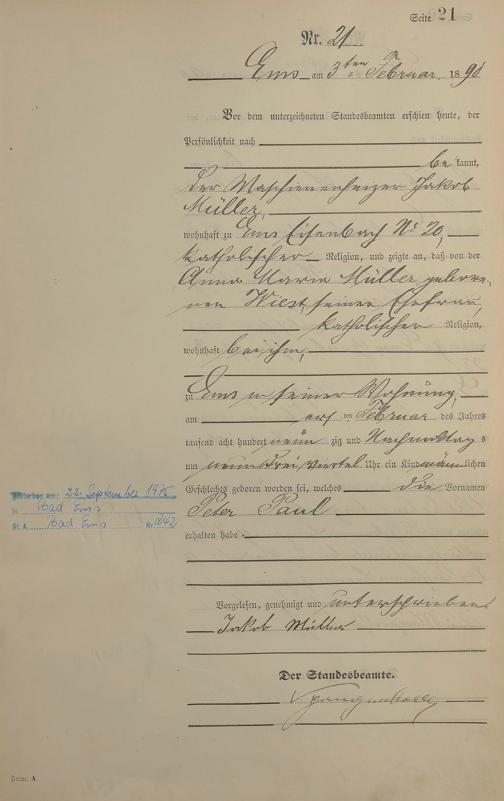 Seite 21
Nr. 21
Ems am 3ten Februar 1890
Vor dem unterzeichneten Standesbeamten erschien heute, der
Persönlichkeit nach
be kannt,
der Maschienenheizer Jakob
Müller,
wohnhaft zu Ems Eisenbach No 20,
katholischer Religion, und zeigte an, daß von der
Anna Maria Müller gebore-
nen Wiest, seiner Ehefrau,
katholischer Religion,
wohnhaft bei ihm,
zu Ems in seiner Wohnung,
am ersten Februar des Jahres
tausend acht hundert neunzig und Nachmittags
um neun drei viertel Uhr ein Kind männlichen
Geschlechts geboren worden sei, welches die Vornamen
Peter Paul
erhalten habe
Vorgelesen, genehmigt und unterschrieben
Jakob Müller
Der Standesbeamte.
am: 22. September 1975
in Bad Ems
St. A. Bad Ems Nr.
Form. A.